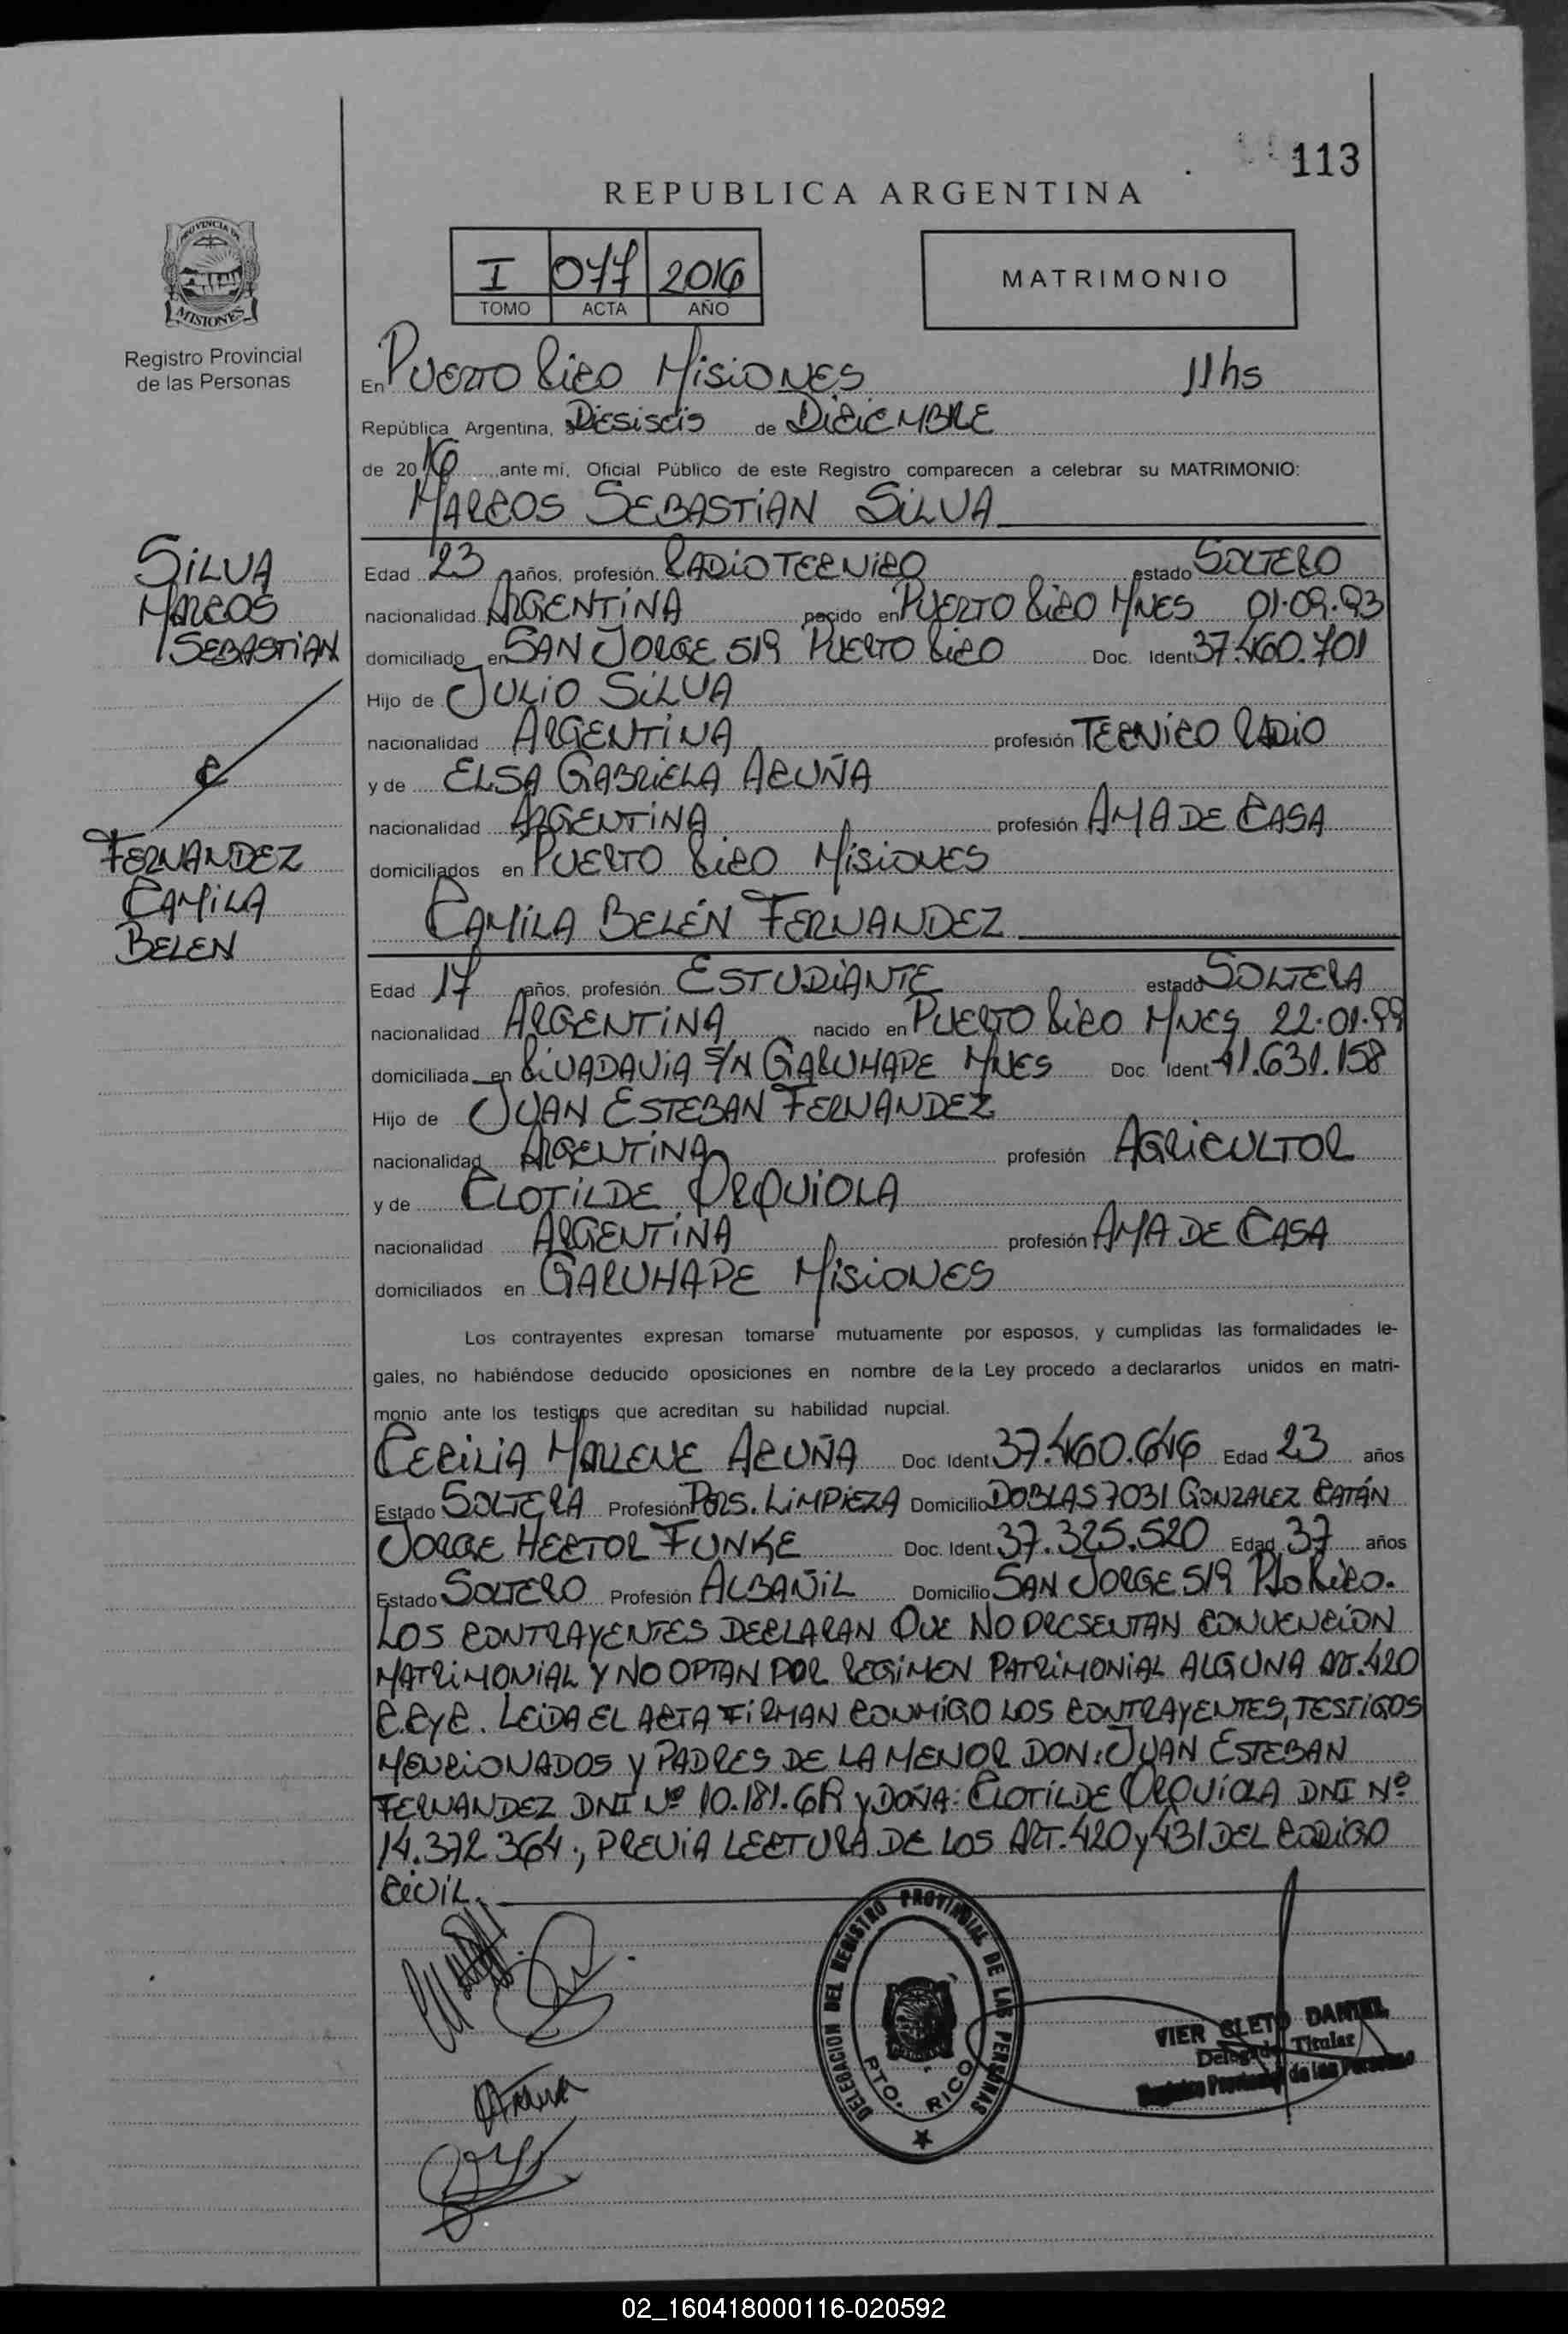 113
REPUBLICA ARGENTINA
PROVINCIA DE
MISIONES
Registro Provincial
de las Personas
I 077 2016
TOMO ACTA AÑO
MATRIMONIO
En PUERTO RICO MISIONES 11hs
República Argentina, a DIESISEIS de DICIEMBRE
de 2016 ante mí, Oficial Público de este Registro comparecen a celebrar su MATRIMONIO:
MARCOS SEBASTIAN SILVA
SILVA
MARCOS
SEBASTIAN
C
FERNANDEZ
CAMILA
BELEN
Edad 23 años, profesión RADIOTECNICO estado SOLTERO
nacionalidad ARGENTINA nacido en PUERTO RICO MNES 01.09.93
domiciliado en SAN JORGE 519 PUERTO RICO Doc. Ident 37.460.701
Hijo de JULIO SILVA
nacionalidad ARGENTINA profesión TECNICO RADIO
y de ELSA GABRIELA ACUÑA
nacionalidad ARGENTINA profesión AMA DE CASA
domiciliados en PUERTO RICO MISIONES
CAMILA BELÉN FERNANDEZ
Edad 17 años, profesión ESTUDIANTE estado SOLTERA
nacionalidad ARGENTINA nacido en PUERTO RICO MNES 22.01.99
domiciliada en RIVADAVIA S/N GARUHAPE MNES Doc. Ident 41.631.158
Hijo de JUAN ESTEBAN FERNANDEZ
nacionalidad ARGENTINA profesión AGRICULTOR
y de CLOTILDE ORQUIOLA
nacionalidad ARGENTINA profesión AMA DE CASA
domiciliados en GARUHAPE MISIONES
Los contrayentes expresan tomarse mutuamente por esposos, y cumplidas las formalidades le-
gales, no habiéndose deducido oposiciones en nombre de la Ley procedo a declararlos unidos en matri-
monio ante los testigos que acreditan su habilidad nupcial.
CECILIA MARLENE ACUÑA Doc. Ident 37.460.646 Edad 23 años
Estado SOLTERA Profesión PERS. LIMPIEZA Domicilio DOBLAS 7031 GONZALEZ CATÁN
JORGE HECTOR FUNKE Doc. Ident 37.325.520 Edad 37 años
Estado SOLTERO Profesión ALBAÑIL Domicilio SAN JORGE 519 Pto RICO.
LOS CONTRAYENTES DECLARAN QUE NO PRESENTAN CONVENCION
MATRIMONIAL Y NO OPTAN POR REGIMEN PATRIMONIAL ALGUNA ART. 420
C.CyC. LEIDA EL ACTA FIRMAN CONMIGO LOS CONTRAYENTES, TESTIGOS
MENCIONADOS Y PADRES DE LA MENOR DON: JUAN ESTEBAN
FERNANDEZ DNI Nº Y DOÑA: CLOTILDE ORQUIOLA DNI Nº
14.372 364., PREVIA LECTURA DE LOS ART. 420 y 431 DEL CODIGO
CIVIL.
DELEGACION DEL REGISTRO PROVINCIAL DE LAS PERSONAS
PTO. RICO
VIER CLETO DANIEL
Delegado Titular
Registro Provincial de las Personas
02_160418000116-020592